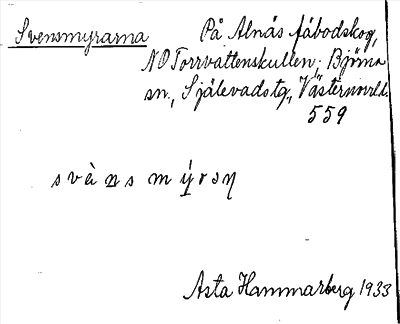 Svensmyrarna
På Alnäs fäbodskog,
NO Torrvattenskullen; Björna
sn., Själevads tg, Västernorrl.
559
s v è n s m ý r ɔ ŋ
Asta Hammarberg 1933